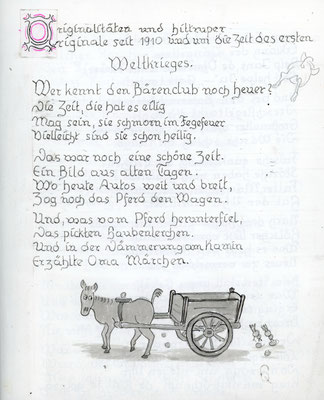 Originalitäten und hiltruper
Originale seit 1910 und um die Zeit des ersten
Weltkrieges.
Wer kennt den Bärenclub noch heuer?
Die Zeit, die hat es eilig
Mag sein, sie schmorn im Fegefeuer
Vielleicht sind sie schon heilig.
Das war noch eine schöne Zeit.
Ein Bild aus alten Tagen.
Wo heute Autos weit und breit,
Zog noch das Pferd den Wagen.
Und, was vom Pferd herunterfiel,
Das pickten Haubenlerchen.
Und in der Dämmerung am Kamin
Erzählte Oma Märchen.